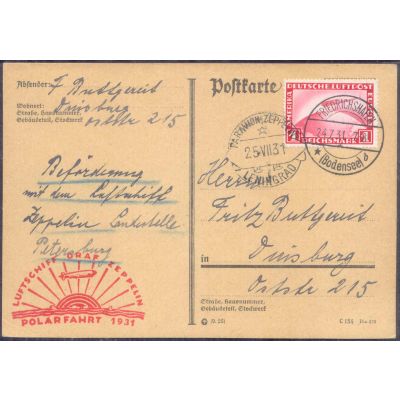 Absender: F Buttgereit
Wohnort: Duisburg
Straße, Hausnummer,
Gebäudeteil, Stockwerk
Oststr 215
Beförderung
mit dem Luftschiff
Zeppelin Landestelle
Petersburg
LUFTSCHIFF GRAF ZEPPELIN
POLARFAHRT 1931
Postkarte
DEUTSCHE LUFTPOST
1 1
REICHSMARK
FRIEDRICHSHAFEN
24.7.31.
(Bodensee) d
25VII31
LENINGRAD
Herrn
Fritz Buttgereit
in Duisburg
Oststr 215
Straße, Hausnummer,
Gebäudeteil, Stockwerk